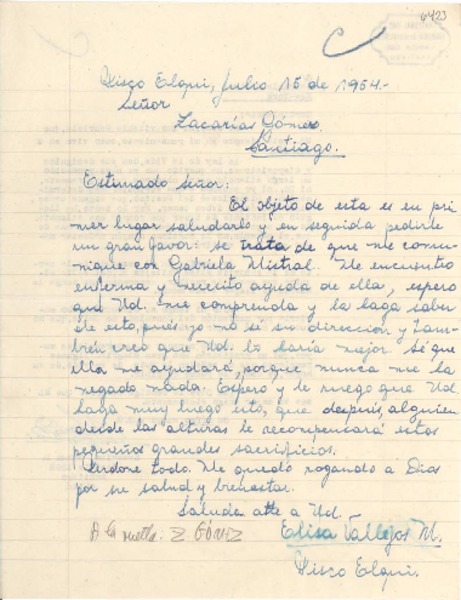 6423
Pisco Elqui, Julio 15 de 1954.-
Señor
Zacarías Gómez
Santiago.
Estimado señor:
El objeto de esta es en pri
mer lugar saludarlo y en seguida pedirle
un gran favor: se trata de que me comu
nique con Gabriela Mistral. Me encuentro
enferma y necesito ayuda de ella, espero
que Ud. me comprenda y le haga saber
de esto, pués yo no sé su dirección y tam
bién creo que Ud. lo haría mejor. Sé que
ella me ayudará, porque nunca me ha
negado nada. Espero y le ruego que Ud.
haga muy luego esto, que después, alguien
desde las alturas le recompensará estos
pequeños grandes sacrificios.
Perdone todo. Me quedo rogando a Dios
por su salud y bienestar.
Saluda atte a Ud.
A la vuelta: Z GÓMEZ
Elisa Vallejos M.
Pisco Elqui.